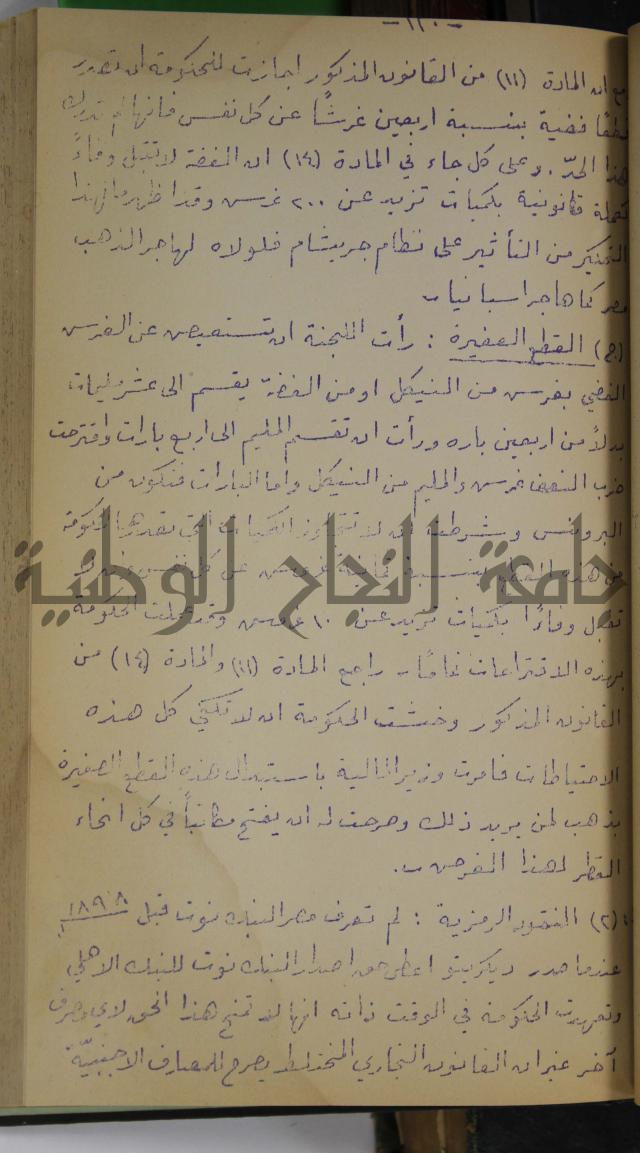 -١١٠-
مع ان المادة (١١) من القانون المذكور اجازت للحكومة ان تصدر
قطعًا فضية بنسبة اربعين غرشًا عن كل نفس فانها لم تدرك
هذا الحدّ. وعلى كل جاء في المادة (١٤) ان الفضة لا تقبل وفاءً
كعملة قانونية بكميات تزيد عن ٢٠٠ غرس وقد ظهر ما لهذا
من التأثير على نظام جريشام فلولاه لهاجر الذهب
مصر كما هاجر اسبانيا.
(ج) القطع الصغيرة : رأت اللجنة ان تستعيض عن الغرس
الفضي بغرس من النيكل او من الفضة يقسم الى عشر مليمات
بدلاً من اربعين باره ورأت ان تقسم المليم الى اربع بارات واقترحت
ضرب النصف غرس والمليم من النيكل واما البارات فتكون من
البرونس وشرطت ان لا تتجاوز الكميات التي تصدرها الحكومة
من هذه القطع بنسبة عن كل نفس
تقبل وفاءًا بكميات تزيد عن ١٠ غروس وقد عملت الحكومة
بهذه الاقتراعات تمامًا. راجع المادة (١١) والمادة (١٤) من
القانون المذكور وخشت الحكومة ان لا تكفي كل هذه
الاحتياطات فامرت وزير المالية باستبدال هذه القطع الصغيرة
بذهب لمن يريد ذلك وصرحت له ان يفتح مكاتباً في كل انحاء
القطر لهذا الغرض.
(٢) النقود الرمزية : لم تعرف مصر البنك نوت قبل ١٨٩٨
عندما صدر ديكريتو اعطى حق اصدار البنك نوت للبنك الاهلي
وتعهدت الحكومة في الوقت ذاته انها لا تمنح هذا الحق لاي مصرف
آخر غير ان القانون التجاري المختلط يصرح للمصارف الاجنبيّة
جامعة النجاح الوطنية